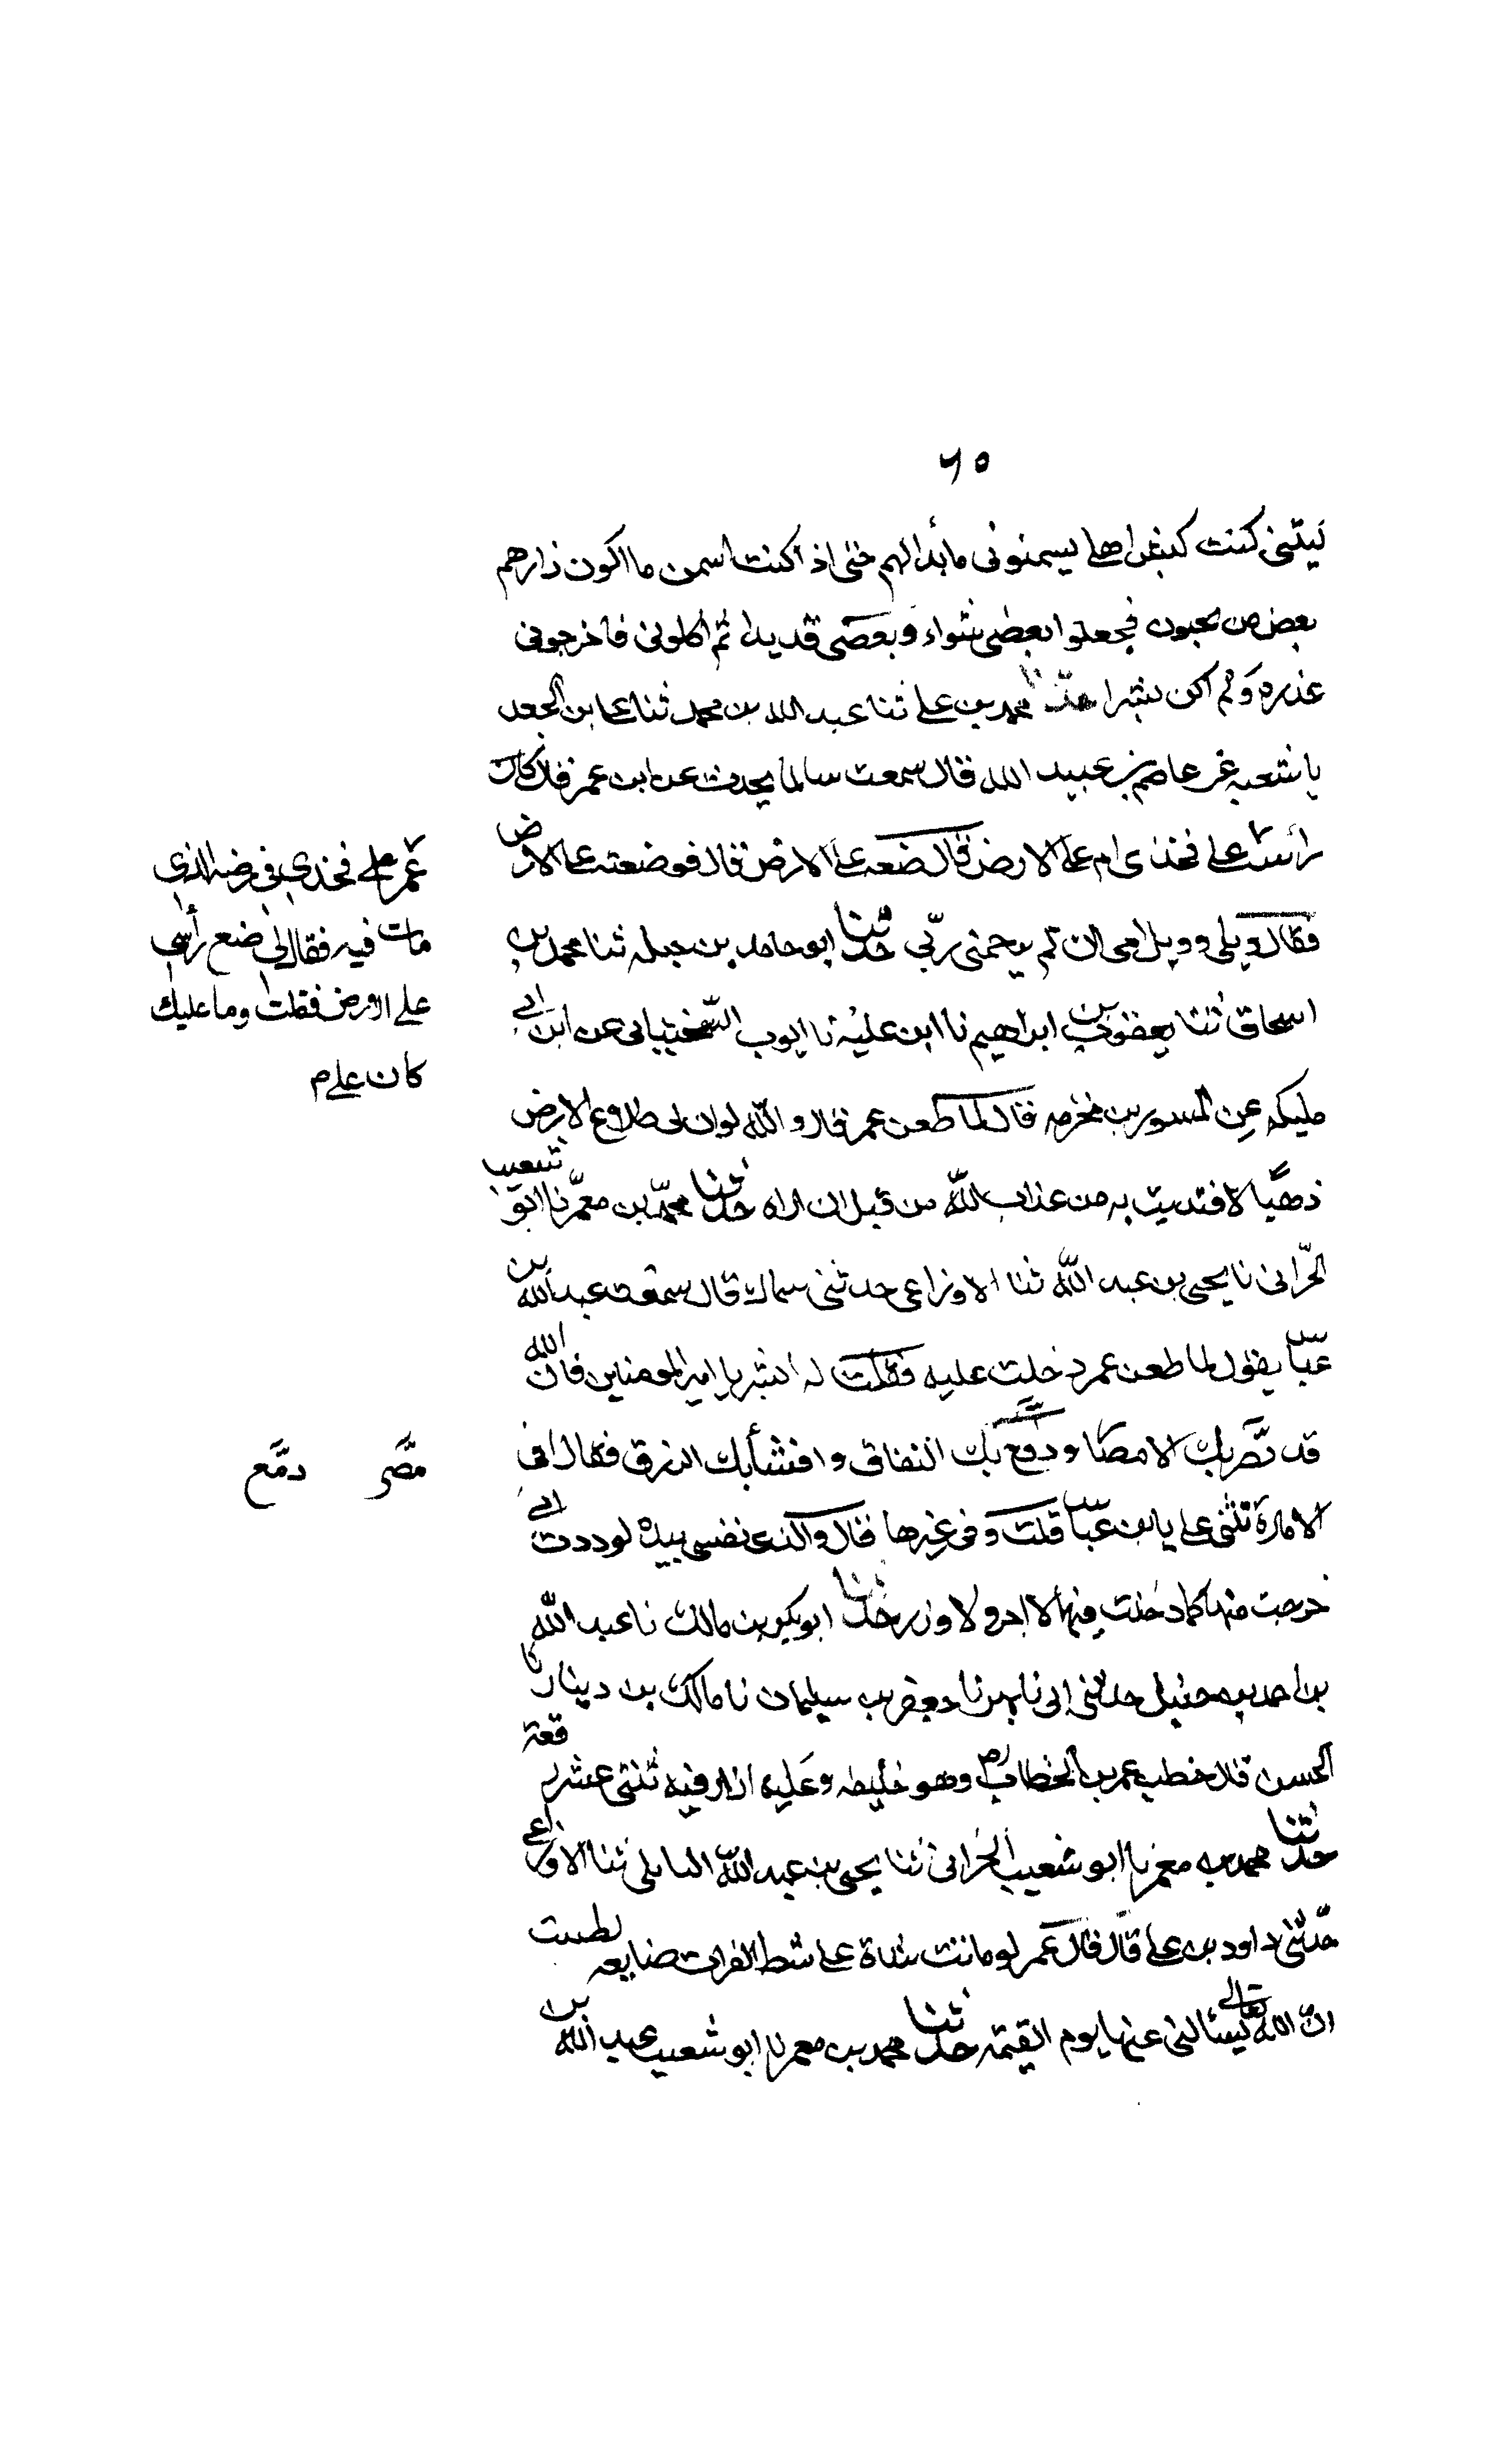 ٦٥
ليتني كنت كبش اهلي يسمنوني ما بدا لهم حتى اذا كنت اسمن ما اكون زارهم
بعض من يحبون فجعلوا بعضي شواء وبعضي قديدا ثم اكلوني فاخرجوني
عذرة ولم اكن بشرا حدثنا محمد بن علي ثنا عبد الله بن محمد ثنا علي ابن الجعد
نا شعبه عن عاصم بن عبيد الله قال سمعت سالما يحدث عن ابن عمر قال كان
رأس على فخذي ام على الارض قال ضعه على الارض قال فوضعته على الارض
فقال ويلي وويل امي ان لم يرحمني ربّي حدثنا ابو حامد بن جبله ثنا محمد بن
اسحاق ثنا يعقوب بن ابراهيم نا ابن عليّة نا ايوب السّختياني عن ابن ابي
مليكه عن المسور بن مخرمه قال لما طعن عمر قال والله لو ان لي طلاع الارض
ذهبًا لافتديت به من عذاب الله من قبل ان اراه حدثنا محمّد بن معمّر نا ابو شعيب
الحرّاني نا يحيى بن عبد الله ثنا الاوزاعي حدثني سماك قال سمعت عبد الله بن
عبّاس يقول لما طعن عمر دخلت عليه فقلت له ابشر يا امير المومنين فان الله
قد مصّر بك الامصار ودفع بك النفاق وافشأ بك الرزق فقال افي
الامارة تثني علي يا ابن عبّاس قلت وفي غيرها قال والذي نفسي بيده لوددت اني
خرجت منها كما دخلت فيها لا اجر ولا وزر حدثنا ابو بكر بن مالك نا عبد الله
بن احمد بن حنبل حدثني ابي نا بهز نا جعفر بن سليمان نا مالك بن دينار نا
الحسن قال خطب عمر بن الخطاب رض وهو خليفه وعليه ازار فيه ثنتي عشر رقعة
حدثنا محمد بن معمر نا ابو شعيب الحراني ثنا يحيى بن عبد الله البابلي ثنا الاوزاعي
حدّثني داود بن علي قال قال عمر لو ماتت شاة على شط الفرات ضايعه لظننت
انّ الله تعالى ليسئالني عنها يوم القيمة حدثنا محمد بن معمر نا ابو شعيب عبد الله بن
عمر على فخذي في مرضه الذي
مات فيه فقال لي ضع رأسي
على الارض فقلت وما عليك
كان على م
مصّر دمّع